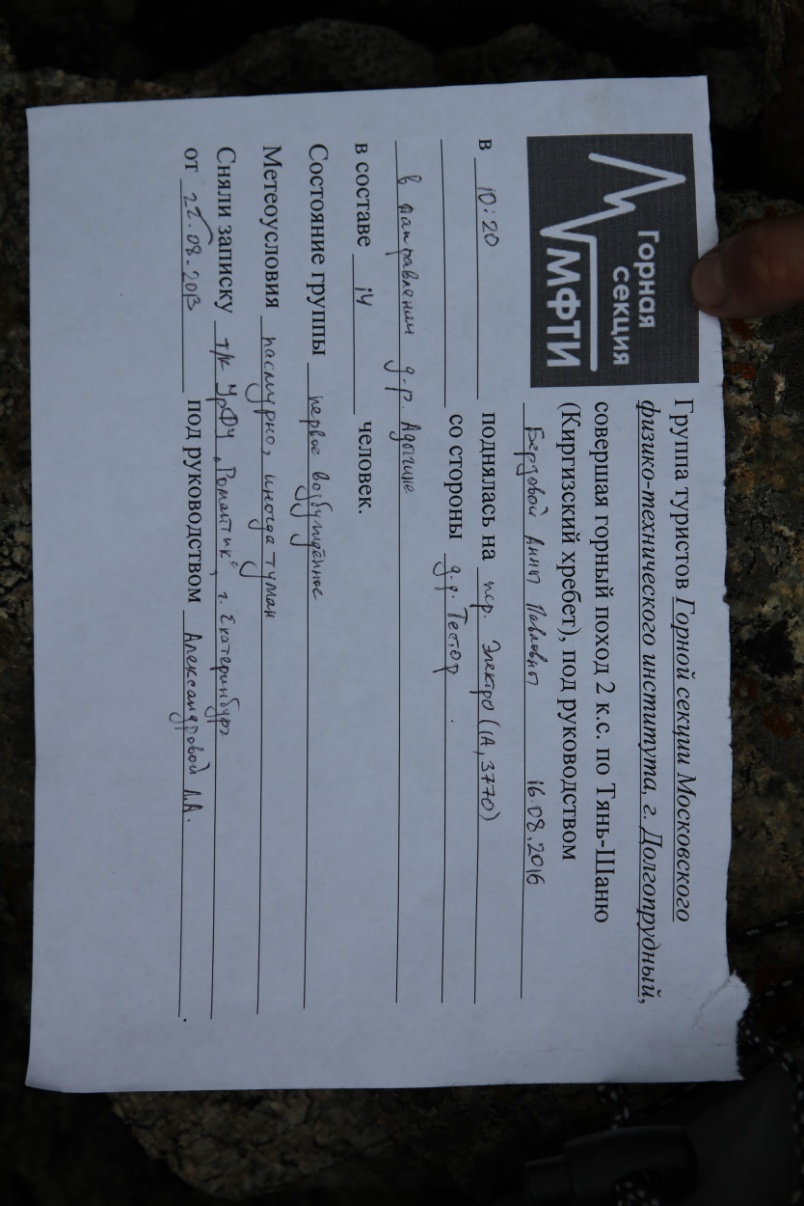 Горная
секция
МФТИ
Группа туристов Горной секции Московского
физико-технического института, г. Долгопрудный,
совершая горный поход 2 к.с. по Тянь-Шаню
(Киргизский хребет), под руководством
Берговой Анны Павловны 16.08.2016
в 10:20 поднялась на пер. Электро (1А, 3770)
со стороны д.р. Тестор
в направлении д.р. Адыгине
в составе 14 человек.
Состояние группы нервно возбуждённое
Метеоусловия пасмурно, иногда туман
Сняли записку т/к УрФУ „Романтик“, г. Екатеринбург
от 22.08.2013 под руководством Александровой Л.А.